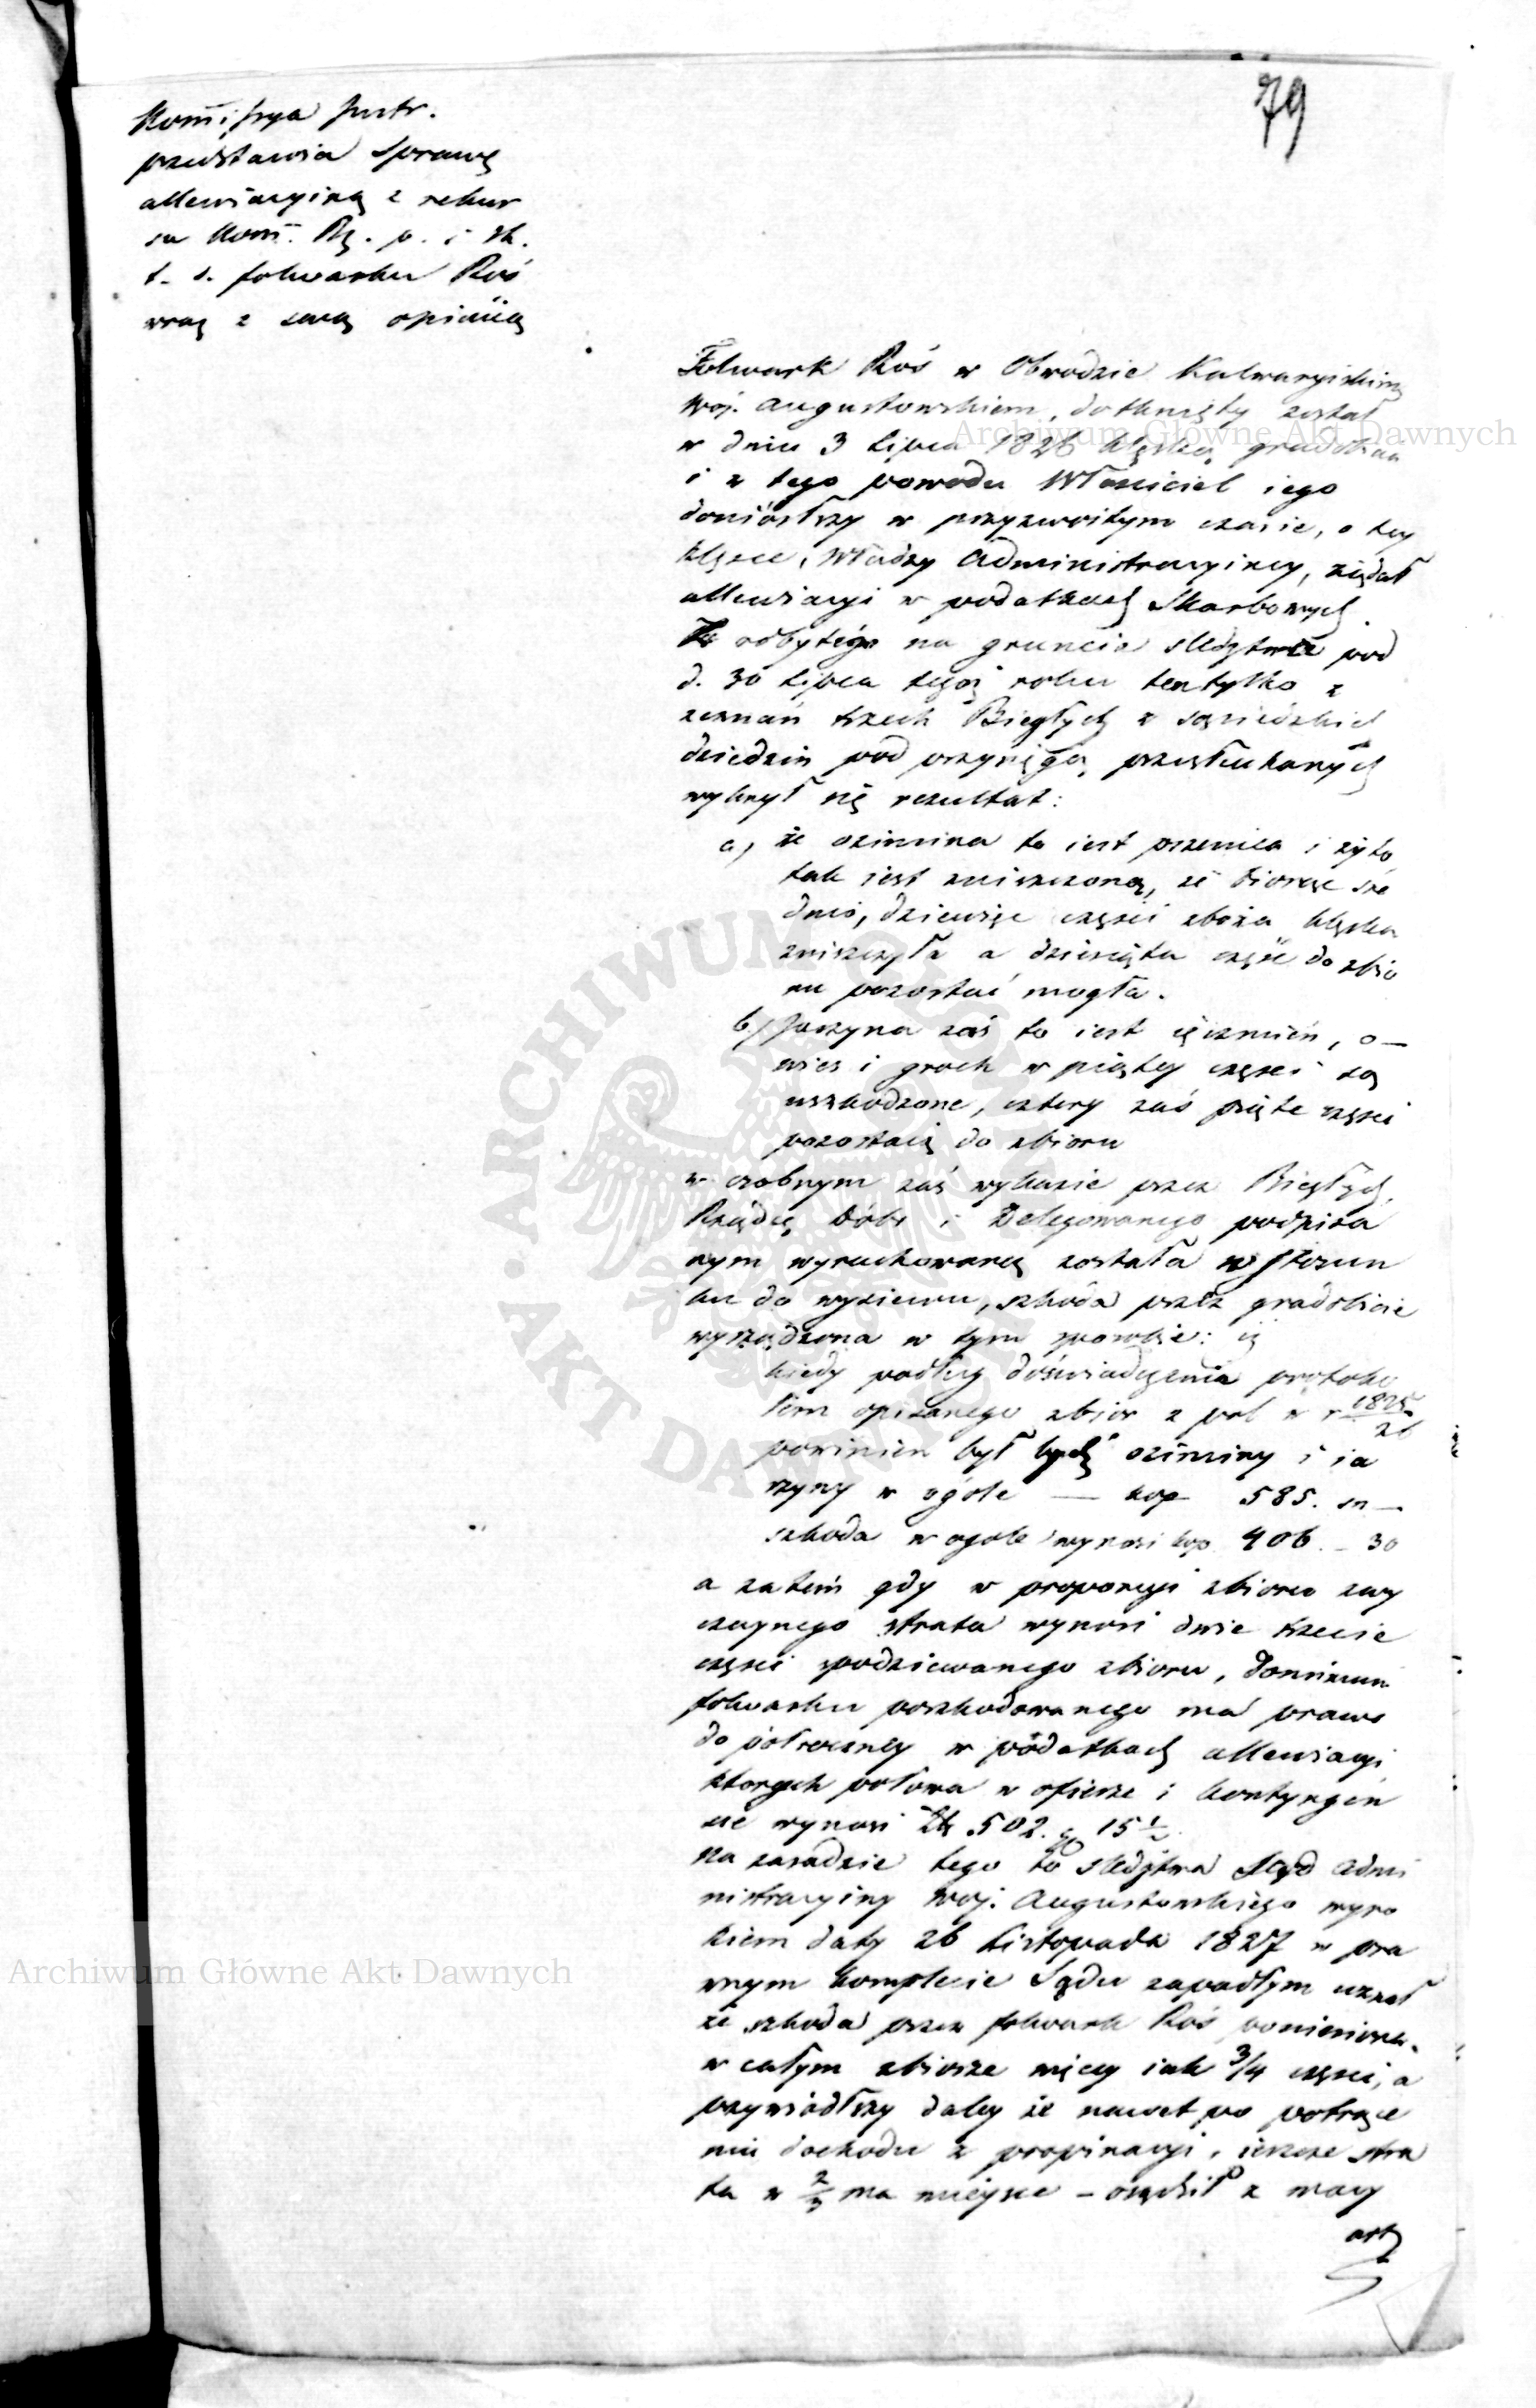 79
Kom̄issya Instr.
przedstawia sprawę
allewiacyiną z rekur
su Kom̄. Rz. p. i Sk.
t. s. folwarku Roś
wraz z swą opiniią
Folwark Roś w Obwodzie Kalwaryiskim
Woj. Augustowskiem, dotknięty został
w dniu 3 Lipca 1826 klęską gradobicia
i z tego powodu Właściciel iego
doniósłszy w przyzwoitym czasie, o tey
klęsce, Władzy Administracyiney, żądał
allewiacyi w podatkach Skarbowych.
Z odbytego na gruncie śledztwa pod
d. 30 Lipca tegoż roku ten tylko z
zeznań trzech Biegłych z sąsiedzkich
dziedzin pod przysięgą przesłuchanych
wykrył się rezultat:
a, że ozimina to iest pszenica i żyto
tak iest zniszczoną, że biorąc śre
dnio, dziewięć części zboża klęska
zniszczyła a dziesiąta część do zbio
ru pozostać mogła.
b, Jarzyna zaś to iest ięczmień, o-
wies i groch w piątey części są
uszkodzone, cztery zaś piąte części
pozostaią do zbioru
w osobnym zaś wykazie przez Biegłych,
Rządcę Dóbr i Delegowanego podpisa
nym wyrachowaną została w stosun
ku do wysiewu, szkoda przez gradobicie
wyrządzona w tym sposobie: iż
kiedy podług doświadczenia protoku
łem opisanego zbior z pol w r 1825/26
powinien był bydź oziminy i ia
rzyny w ogóle — kop 585. sn —
szkoda w ogole wynosi kop 406. – 30
a zatem gdy w proporcyi zbioru zwy
czaynego strata wynosi dwie trzecie
części spodziewanego zbioru, Dominium
folwarku poszkodowanego ma prawo
do półroczney w podatkach allewiacyi
ktorych połowa w ofierze i kontyngen
sie wynosi Złt 502. gr 15 ½.
Na zasadzie tego to śledztwa Sąd Admi
nistracyiny Woj. Augustowskiego wyro
kiem daty 26 Listopada 1827 w pra
wnym komplecie Sądu zapadłym uznał
że szkoda przez folwark Roś poniesiona
w całym zbiorze więcey iak 3/4 części, a
przywiodłszy daley że nawet po potrące
niu dochodu z propinacyi, ieszcze stra
ta w 2/3 ma mieysce – osądził z mocy
art